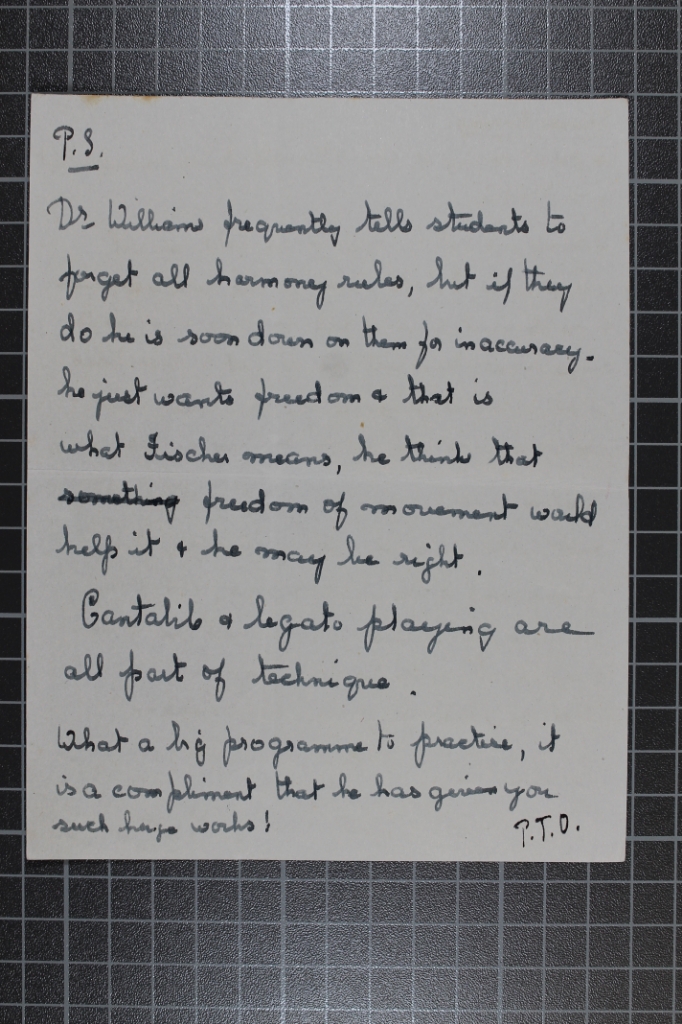 P.S.
Dr Williams frequently tells students to
forget all harmoney rules, but if they
do he is soon down on them for inaccuracy.
he just wants freedom & that is
what Fischer means, he think that
something freedom of movement would
help it & he may be right.
Cantalib & legato playing are
all part of technique.
What a big programme to practise, it
is a compliment that he has given you
such huge works!
P.T.O.